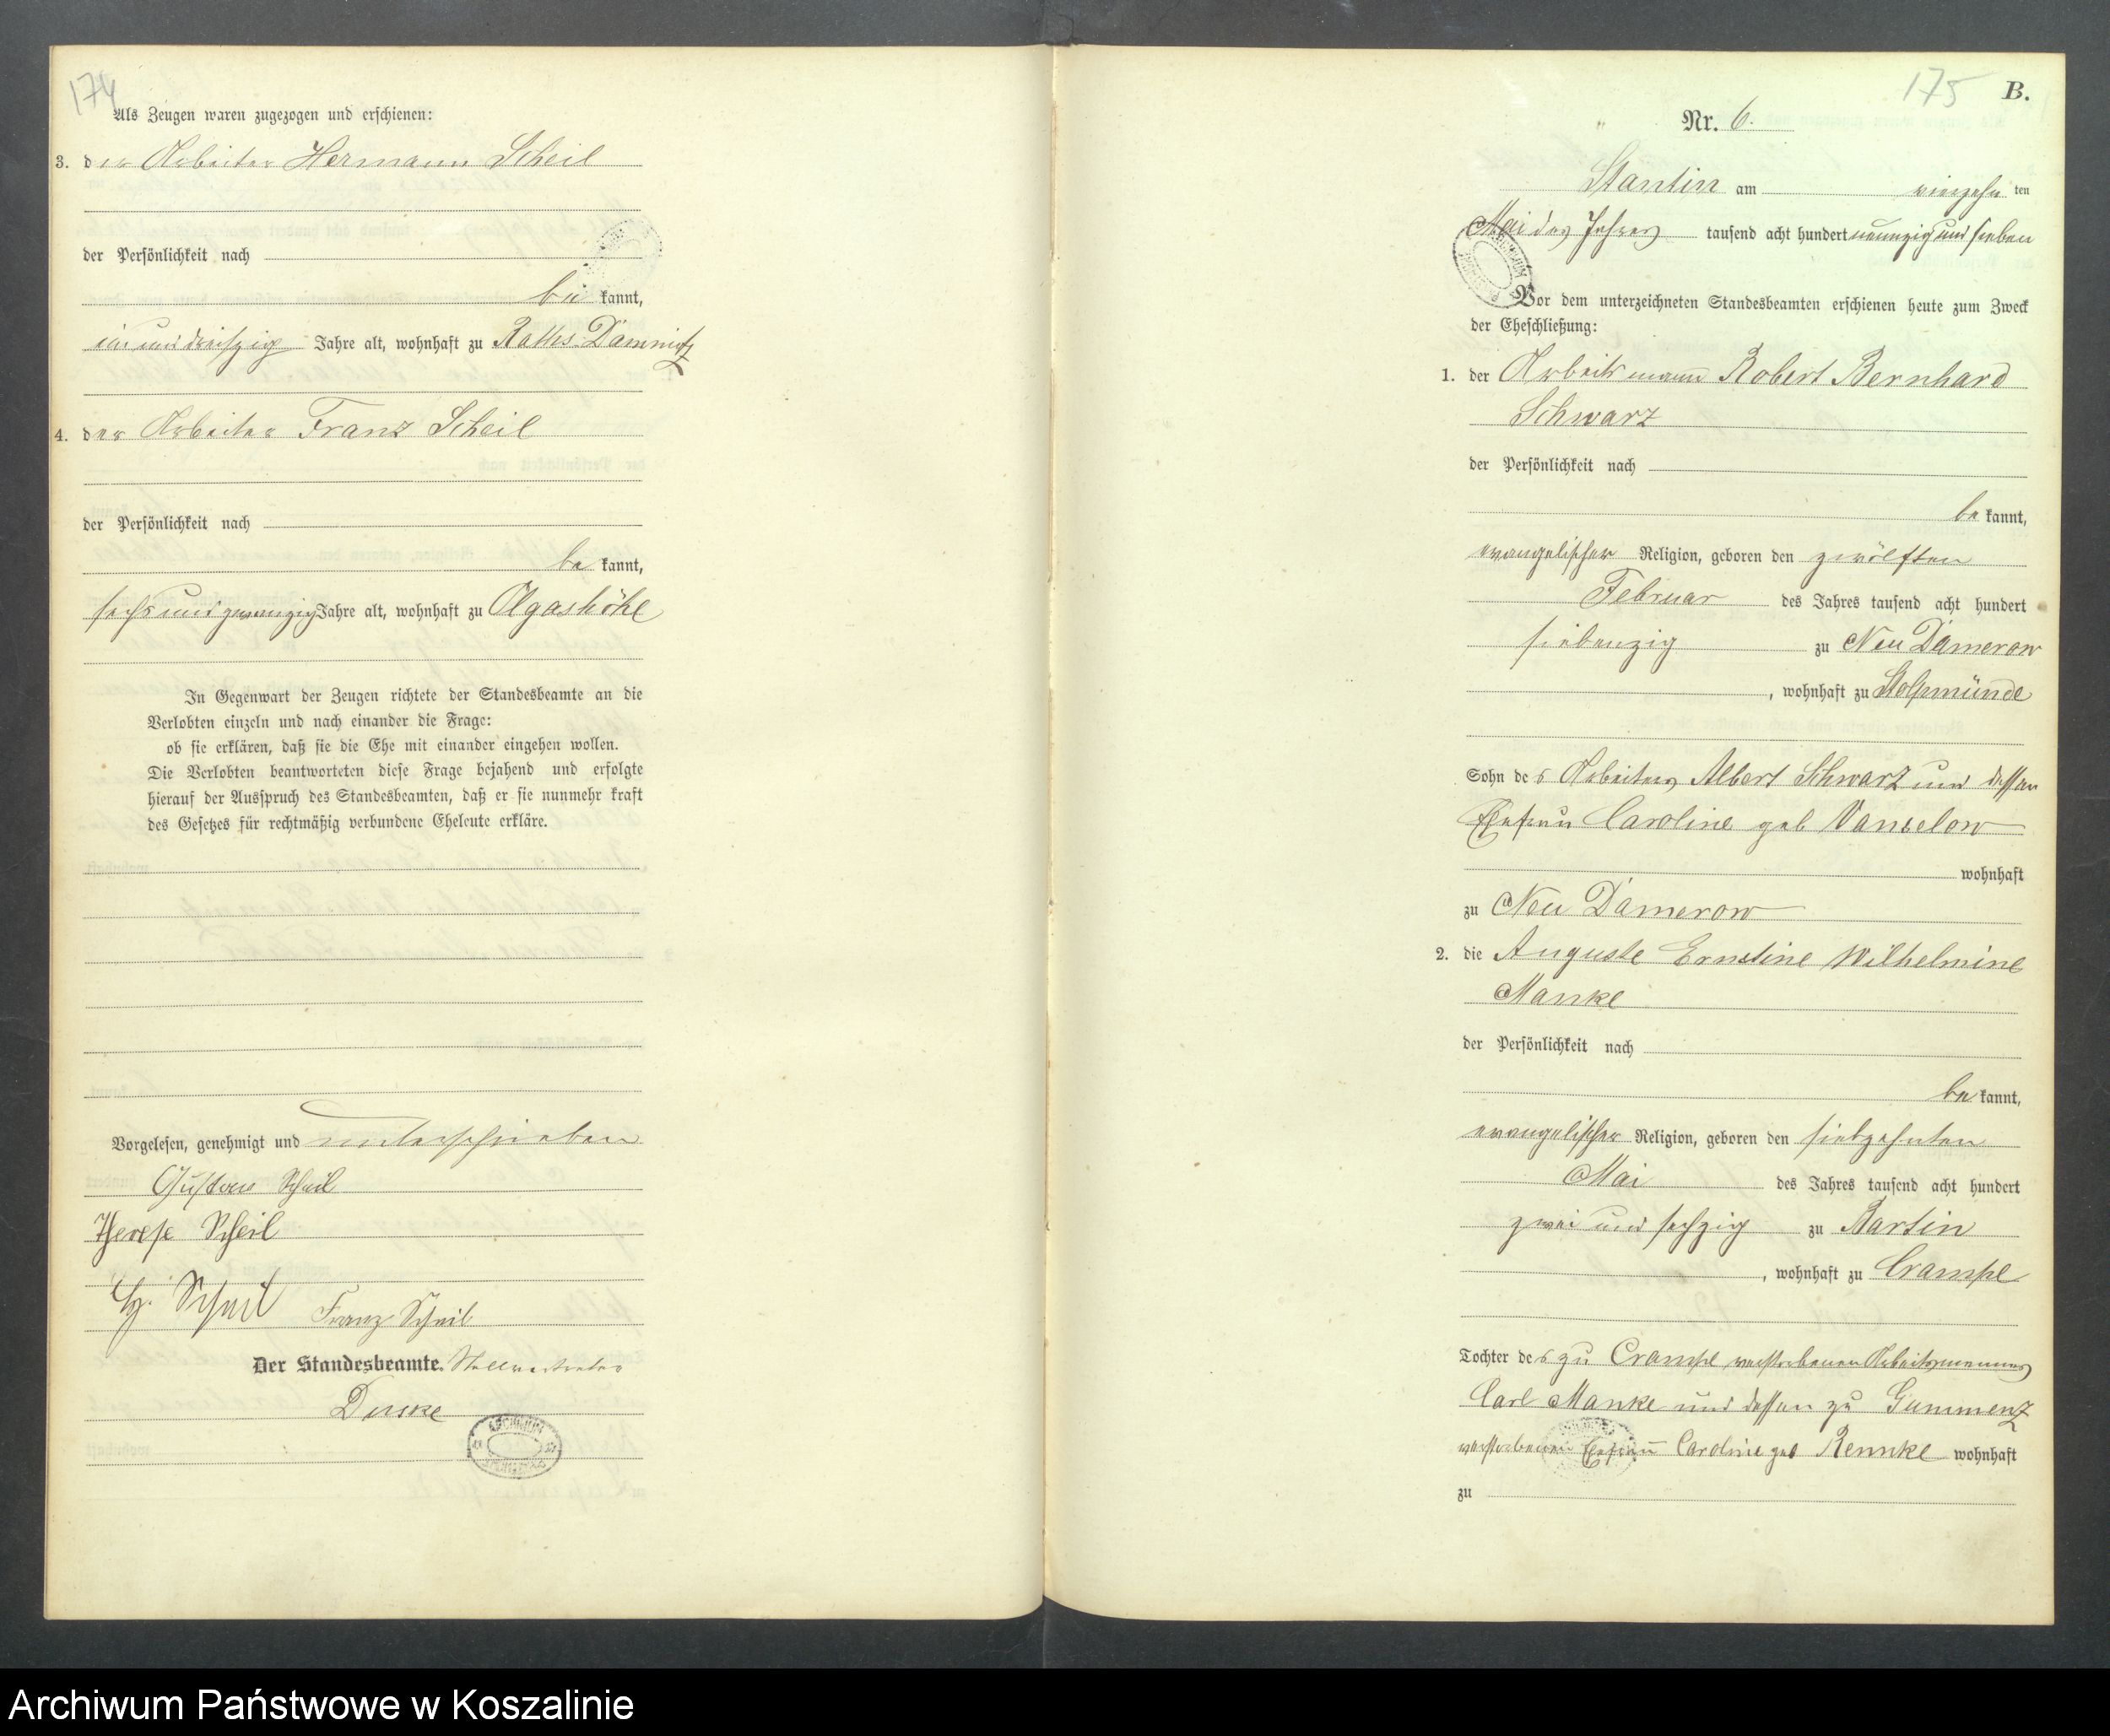 174
Als Zeugen waren zugezogen und erschienen:
3. der Arbeiter Hermann Scheil
der Persönlichkeit nach
be kannt,
und dreißig Jahre alt, wohnhaft zu Raths-Damnitz
4. der Arbeiter Franz Scheil
der Persönlichkeit nach
be kannt,
sechs und zwanzig Jahre alt, wohnhaft zu Olgashöhe
In Gegenwart der Zeugen richtete der Standesbeamte an die
Verlobten einzeln und nach einander die Frage:
ob sie erklären, daß sie die Ehe mit einander eingehen wollen.
Die Verlobten beantworteten diese Frage bejahend und erfolgte
hierauf der Ausspruch des Standesbeamten, daß er sie nunmehr kraft
des Gesetzes für rechtmäßig verbundene Eheleute erkläre.
Vorgelesen, genehmigt und unterschrieben
Gustav Scheil
Therese Scheil
H. Scheil Franz Scheil
Der Standesbeamte. Stellvertreter
175 B.
Nr. 6.
Stantin am vierzehn ten
Mai des Jahres tausend acht hundert neunzig und sieben
Vor dem unterzeichneten Standesbeamten erschienen heute zum Zweck
der Eheschließung:
1. der Arbeitsmann Robert Bernhard
Schwarz
der Persönlichkeit nach
be kannt,
evangelischer Religion, geboren den zwölften
Februar des Jahres tausend acht hundert
siebenzig zu Neu Damerow
, wohnhaft zu Stolpmünde
Sohn des Arbeiters Albert Schwarz und dessen
Ehefrau Caroline geb Vanselow
wohnhaft
zu Neu Damerow
2. die Auguste Ernstine Wilhelmine
Manke
der Persönlichkeit nach
be kannt,
evangelischer Religion, geboren den siebzehnten
Mai des Jahres tausend acht hundert
zwei und sechzig zu Bartin
, wohnhaft zu Crampe
Tochter des zu Crampe verstorbenen Arbeitsmannes
Carl Manke und dessen zu Gummenz
verstorbenen Ehefrau Caroline geb Rennke wohnhaft
zu
Archiwum Państwowe w Koszalinie